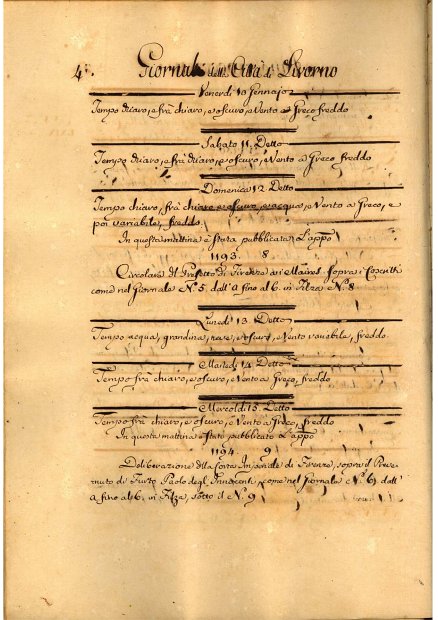 4. Giornale della Città di Livorno
Venerdi 10 Gennajo
Tempo chiaro, e frà chiaro, e oscuro, e Vento a Greco freddo
Sabato 11. Detto
Tempo chiaro, e frà chiaro, e oscuro, e Vento a Greco freddo
Domenica 12 Detto
Tempo chiaro, frà chiaro e oscuro, e acqua, e Vento a Greco, e
poi variabile, freddo
In questa mattina è stata pubblicata L'appo
1193. 8
Circolare del Prefetto di Firenze ai Maires sopra i Coscritti
come nel Giornale N. 5. dall' a fino al 6. in Filza N. 8
Lunedi 13. Detto
Tempo acqua, grandina, neve, e oscuro, e Vento variabile, freddo
Martedi 14. Detto
Tempo frà chiaro, e oscuro, e Vento a Greco, freddo
Mercoldi 15. Detto
Tempo frà chiaro, e oscuro, e Vento a Greco, freddo
In questa mattina è stato pubblicato L'appo
1194. 9
Deliberazione della Corte Imperiale di Firenze, sopra il Preve-
nuto di Furto Paolo degl' Innocenti come nel Giornale N. 6) dall'
a fino al 6. in Filza, sotto il N. 9